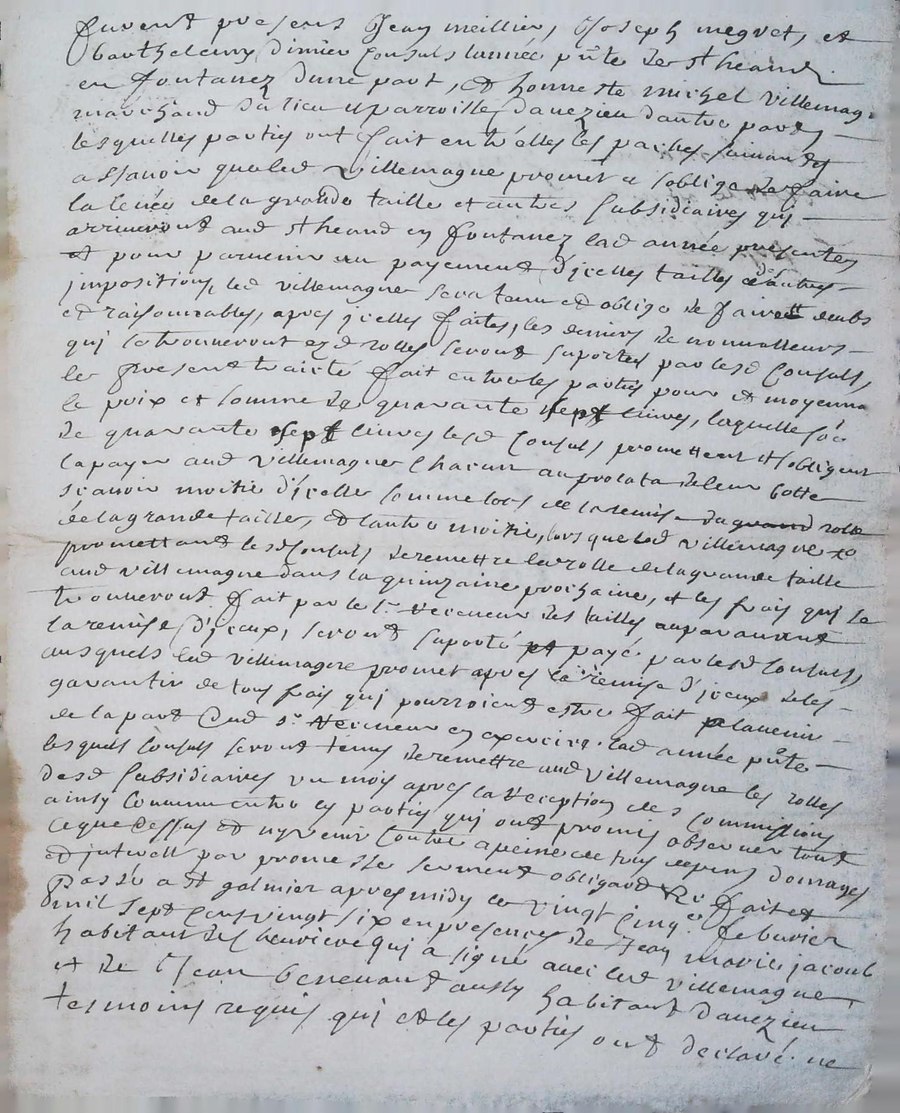 furent presens Jean meillier, Joseph megret, et
barthelemy dimier Consuls lannee pnte de st heand
en fontanez dune part, et honneste michel villemag.
marchand du lieu et parroisse davezieu dautre part
lesquelles parties ont fait entre elles les paches suivants
assavoir que led villemagne promet et soblige de faire
la levée de la grande taille et autres subsidiaires qui
arriveront aud st heand en fontanez lad année presente
et pour parvenir au payement dicelles tailles et autres
impositions, led villemagne sera tenu et obligé de faire deubs
et raisonnables, apres icelles faites, les deniers de nonvalleurs
qui se trouveront ezd rolles seront suportés par lesd Consuls,
le present traicté fait entre les parties pour et moyenna
le prix et somme de quarante sept livres, laquelle so
de quarante sept livres lesd Consuls promettent et sobligent
la payer aud villemagne chacun au prolata de leur cotte
scavoir moitié dicelle somme lors de la remise du grand rolle
de la grande taille, et lautre moitié, lors que led villemagne
promettant lesd Consuls de remettre le rolle de la grande taille
aud villemagne dans la quinzaine prochaine, et les frais qui se
trouveront fait par le sr receveur des tailles auparavant
la remise diceux, seront suporté et payé par lesd Consuls,
ausquels led villemagne promet apres la remise diceux de les
garantir de tous frais qui pourroient estre fait a lavenir
de la part dud sr receveur en exercice lad année pnte
lesquels Consuls seront tenus de remettre aud villemagne les rolles
desd subsidiaires un mois apres la reception des commissions
ainsy Convenu entre les parties qui ont promis observer tout
ce que dessus et ny venir Contre a peine de tous despens domages
et interest par promesse serment obligaon fait et
Passé a st galmier apres midy ce vingt cinqe febvrier
mil sept cens vingt six en presence de Jean marie jacoub
habitant de Cheurieres qui a signé avec led villemagne
et de Jean benevant aussy habitant davezieu
tesmoins requis qui et les parties ont declaré ne